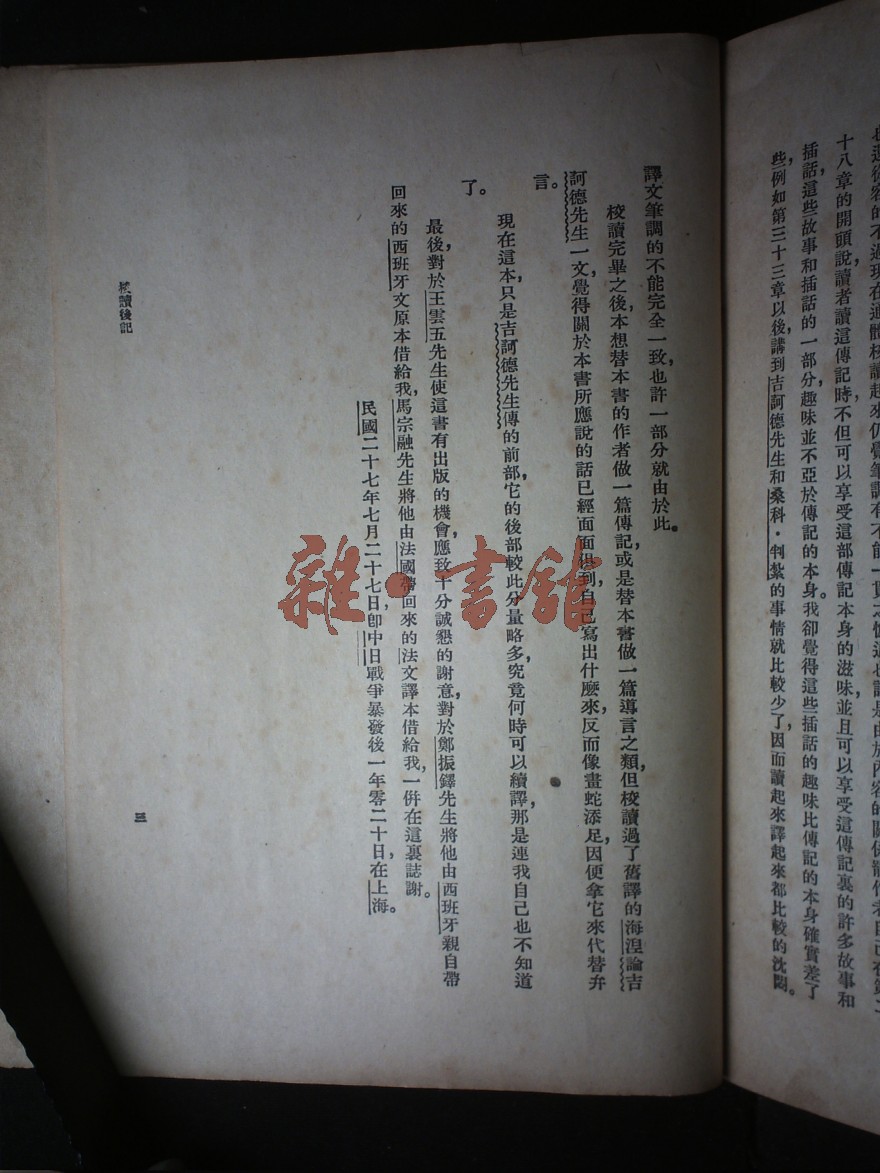 十八章的開頭說，讀者讀這傳記時不但可以享受這部傳記本身的滋味並且可以享受這傳記裏的許多故事和
插話，這些故事和插話的一部分，趣味並不亞於傳記的本身。我卻覺得這些插話的趣味比傳記的本身確實差了
些，例如第三十三章以後，講到吉訶德先生和桑科·判紮的事情就比較少了，因而讀起來譯起來都比較的沈悶。
譯文筆調的不能完全一致，也許一部分就由於此。
校讀完畢之後，本想替本書的作者做一篇傳記，或是替本書做一篇導言之類，但校讀過了舊譯的海涅論吉
訶德先生一文，覺得關於本書所應說的話已經面面俱到，自己寫出什麼來，反而像畫蛇添足，因便拿它來代替弁
言。
現在這本只是吉訶德先生傳的前部，它的後部較此分量略多，究竟何時可以續譯，那是連我自己也不知道
了。
最後，對於王雲五先生使這書有出版的機會，應致十分誠懇的謝意，對於鄭振鐸先生將他由西班牙親自帶
回來的西班牙文原本借給我，馬宗融先生將他由法國帶回來的法文譯本借給我，一併在這裏誌謝。
民國二十七年七月二十七日，卽中日戰爭暴發後一年零二十日，在上海。
校讀後記
三
雜·書館